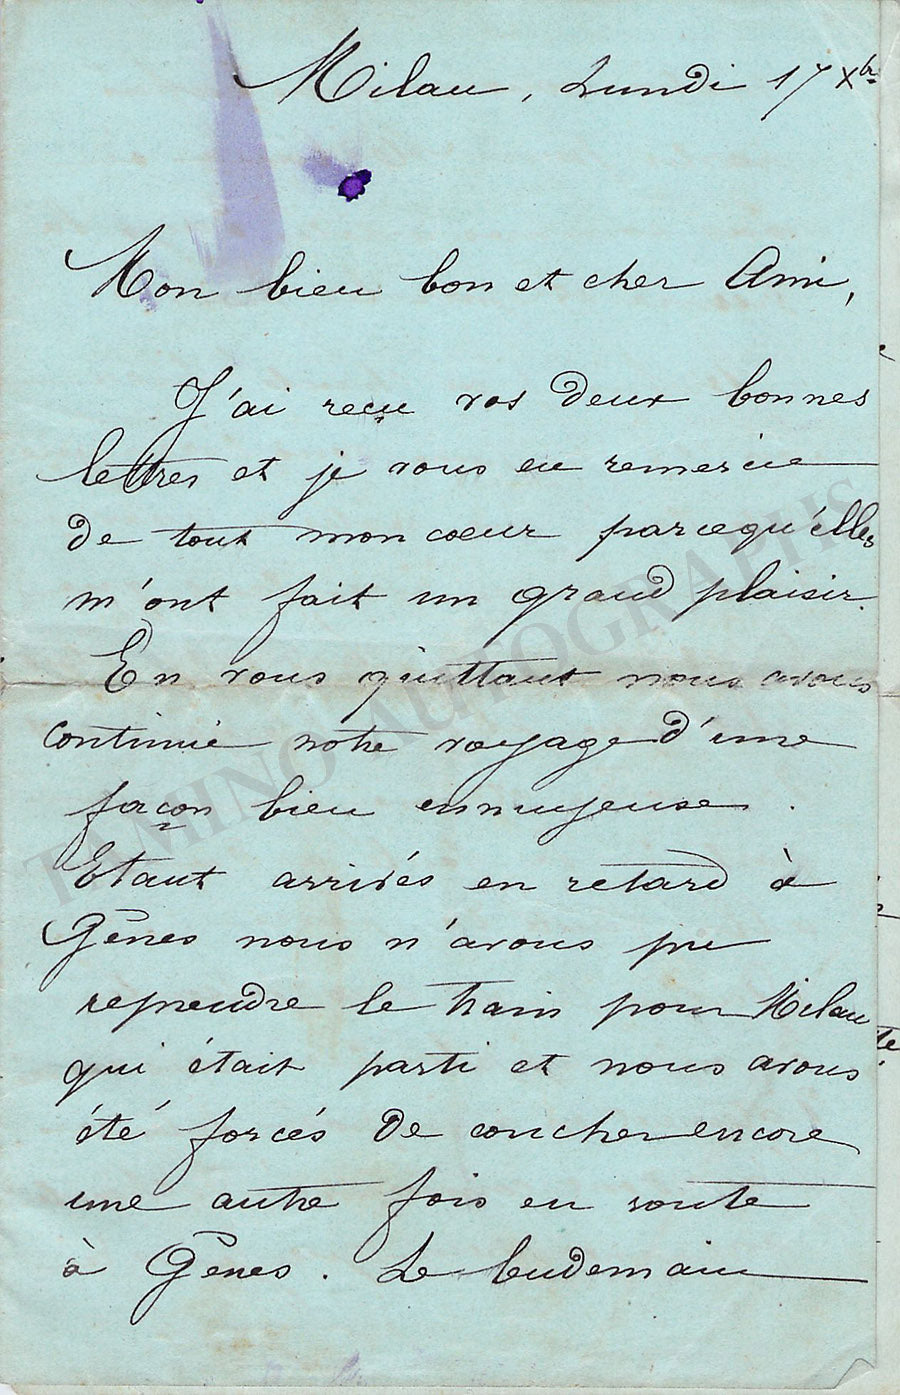 Milan, Lundi 17 Xbre
Mon bien bon et cher Ami,
J'ai reçu vos deux bonnes
lettres et je vous en remercie
de tout mon cœur parcequ'elles
m'ont fait un grand plaisir.
En vous quittant nous avons
continué notre voyage d'une
façon bien ennuyeuse.
Etant arrivés en retard à
Gênes nous n'avons pu
reprendre le train pour Milan
qui était parti et nous avons
été forcés de coucher encore
une autre fois en route
à Gênes. Le lendemain
TAMINO AUTOGRAPHS